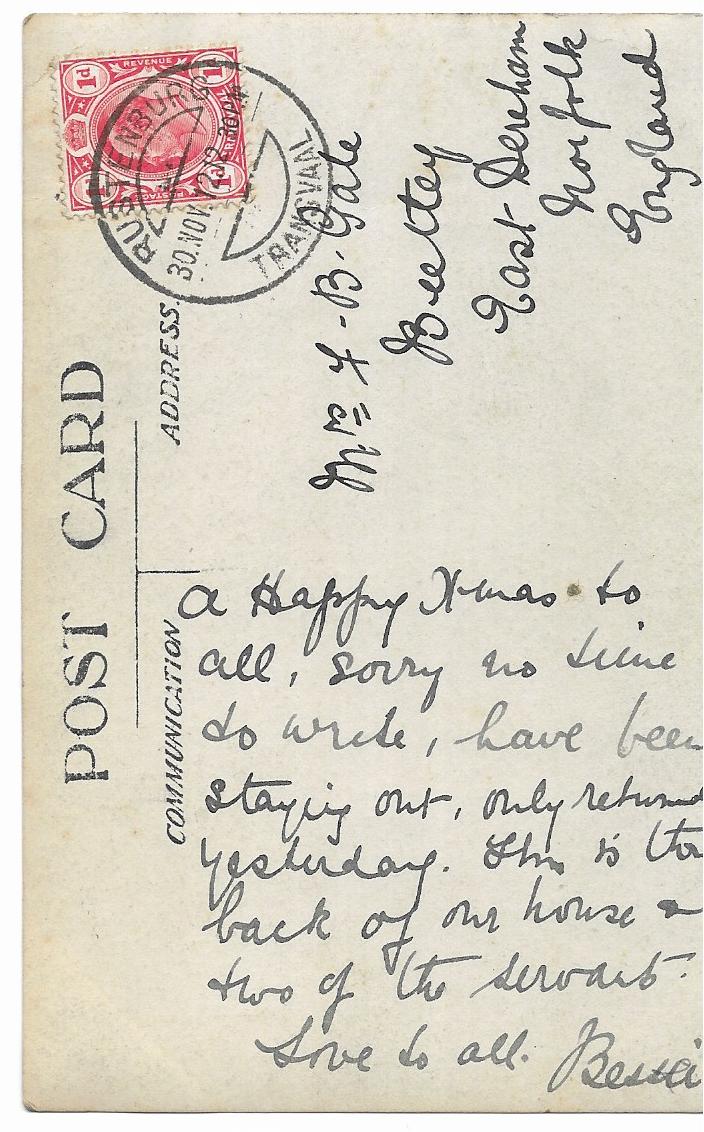 POST CARD
COMMUNICATION
ADDRESS.
REVENUE
1d
POSTAGE
RUSTENBURG
30.NOV.12
TRANSVAAL
Mrs F-B-Gale
Beetley
East Dereham
Norfolk
England
A Happy X-mas to
all, sorry no time
to write, have been
staying out, only returned
yesterday. This is the
back of our house &
two of the servants.
Love to all. Bessie